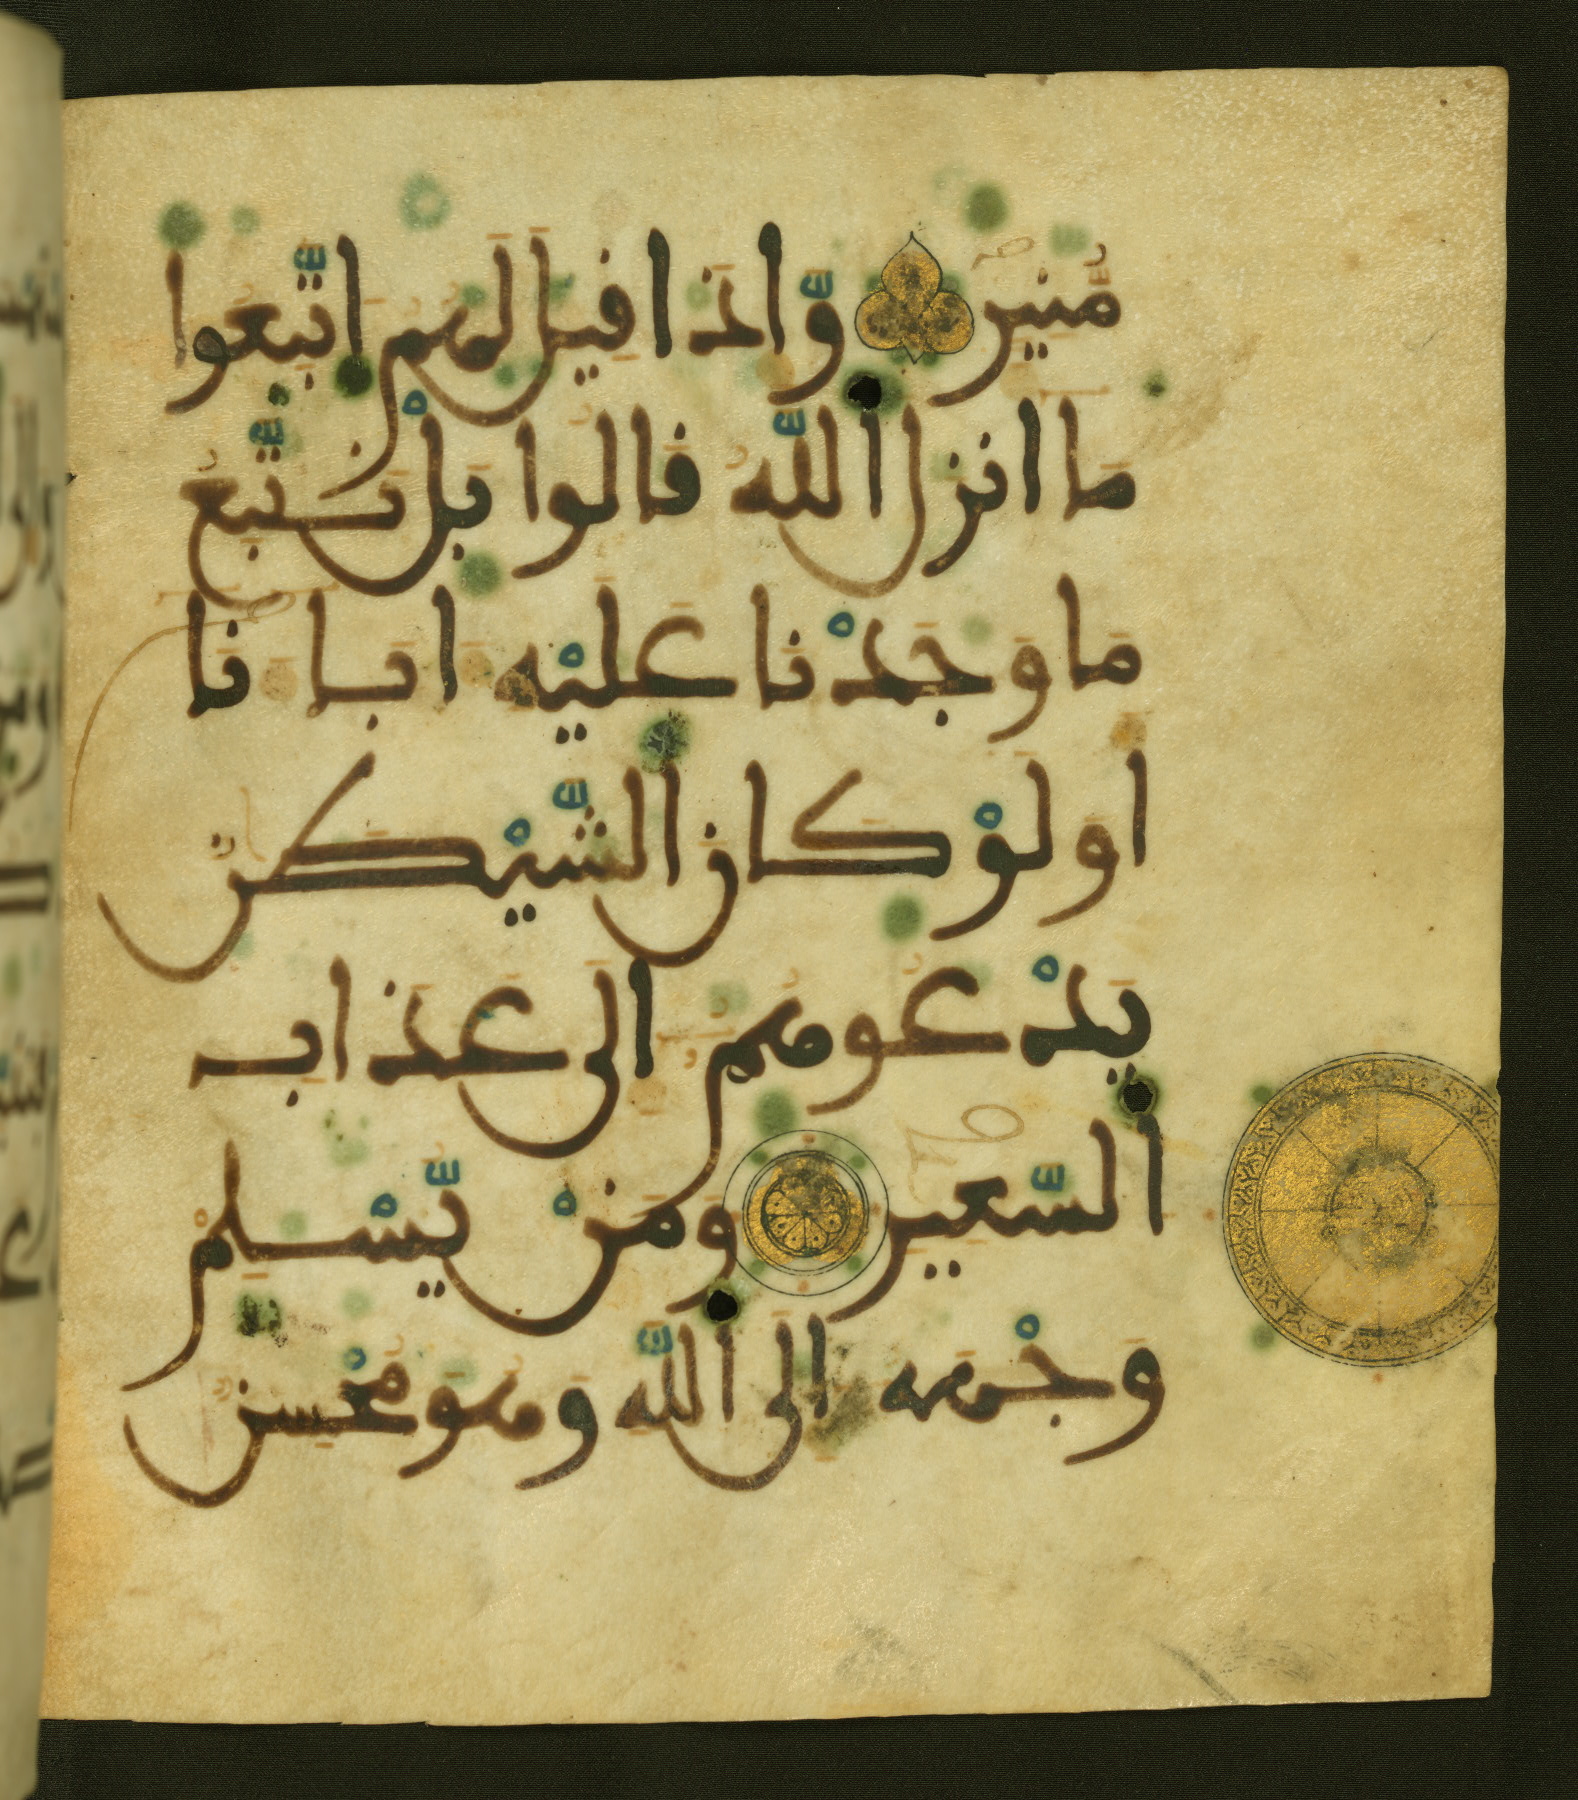 مُّنِيرٍ وَّإِذَا قِيلَ لَهُمُ اتَّبِعُوا
مَا أَنزَلَ اللَّهُ قَالُوا بَلْ نَتَّبِعُ
مَا وَجَدْنَا عَلَيْهِ ءَابَاءَنَا
أَوَلَوْ كَانَ الشَّيْطَنُ
يَدْعُوهُمُ إِلَى عَذَابِ
السَّعِيرِ وَمَنْ يُّسْلِمْ
وَجْهَهُ إِلَى اللَّهِ وَهُوَ مُحْسِنٌ